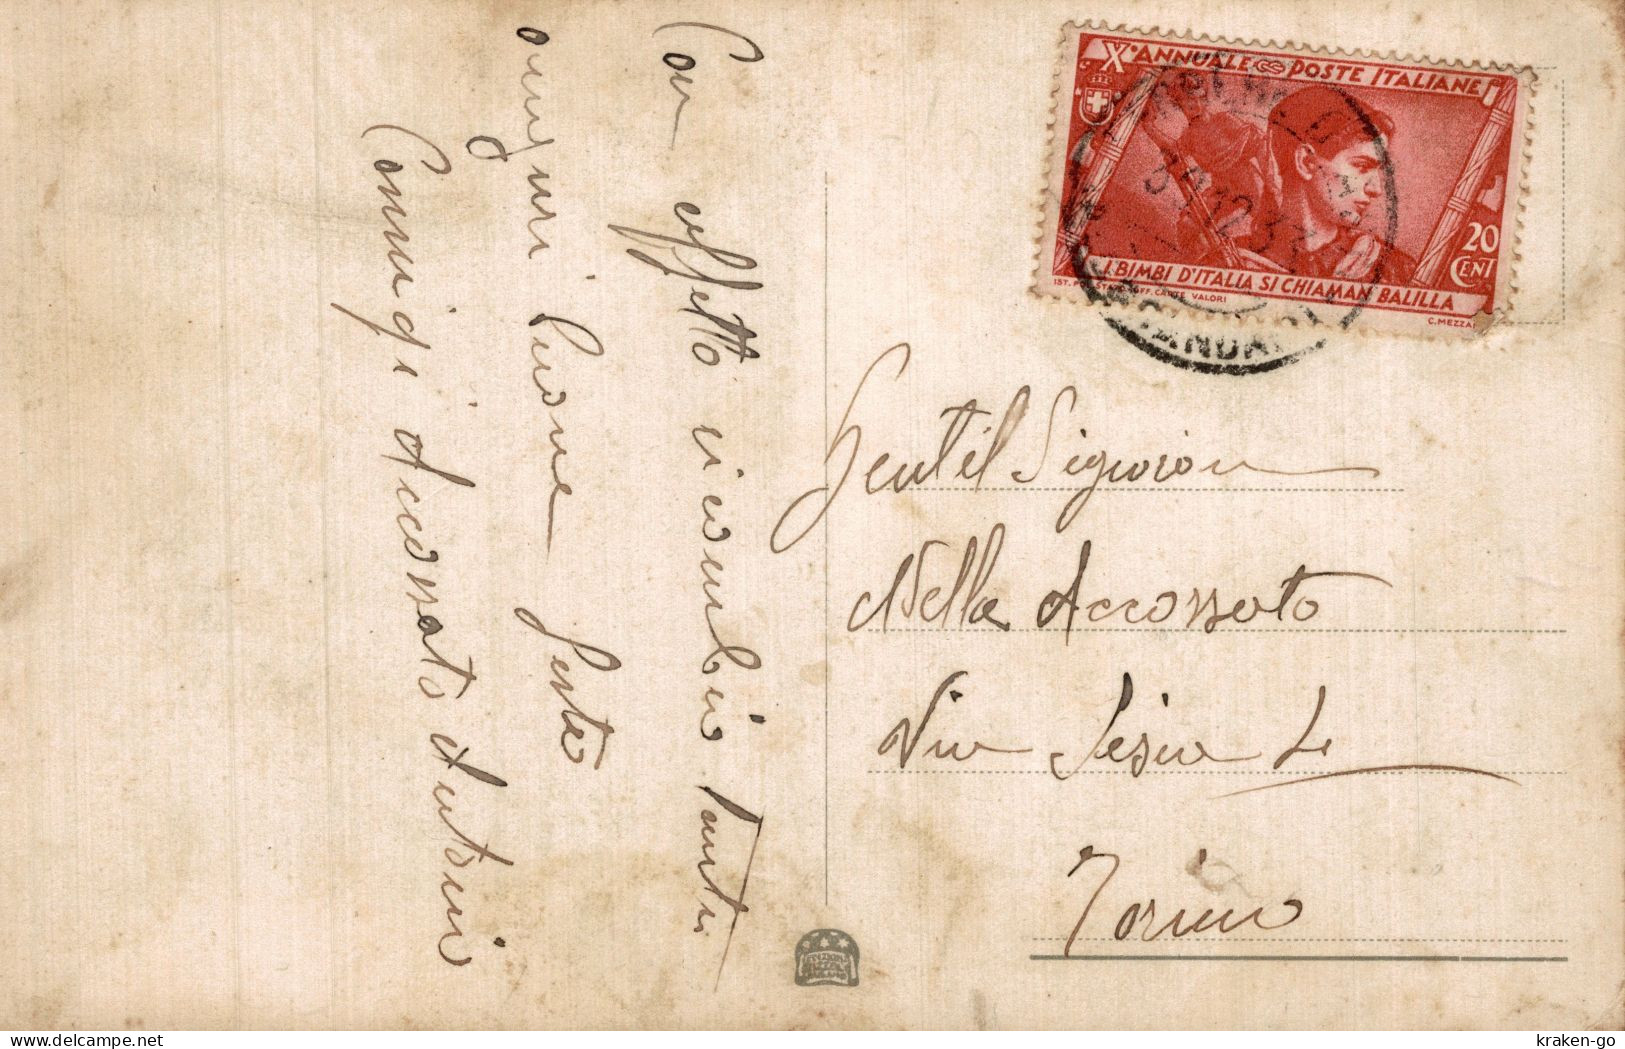 Con affetto vi cambio tanti
auguri buone feste
Coniugi Accossato Antonio
X° ANNUALE POSTE ITALIANE
20
CENT
I BIMBI D'ITALIA SI CHIAMAN BALILLA
IST. POL. STATO OFF. CARTE VALORI
C. MEZZA
Gentil Signorina
Nella Accossato
Via Sesia 4
Torino
EDIZIONI
kraken-go